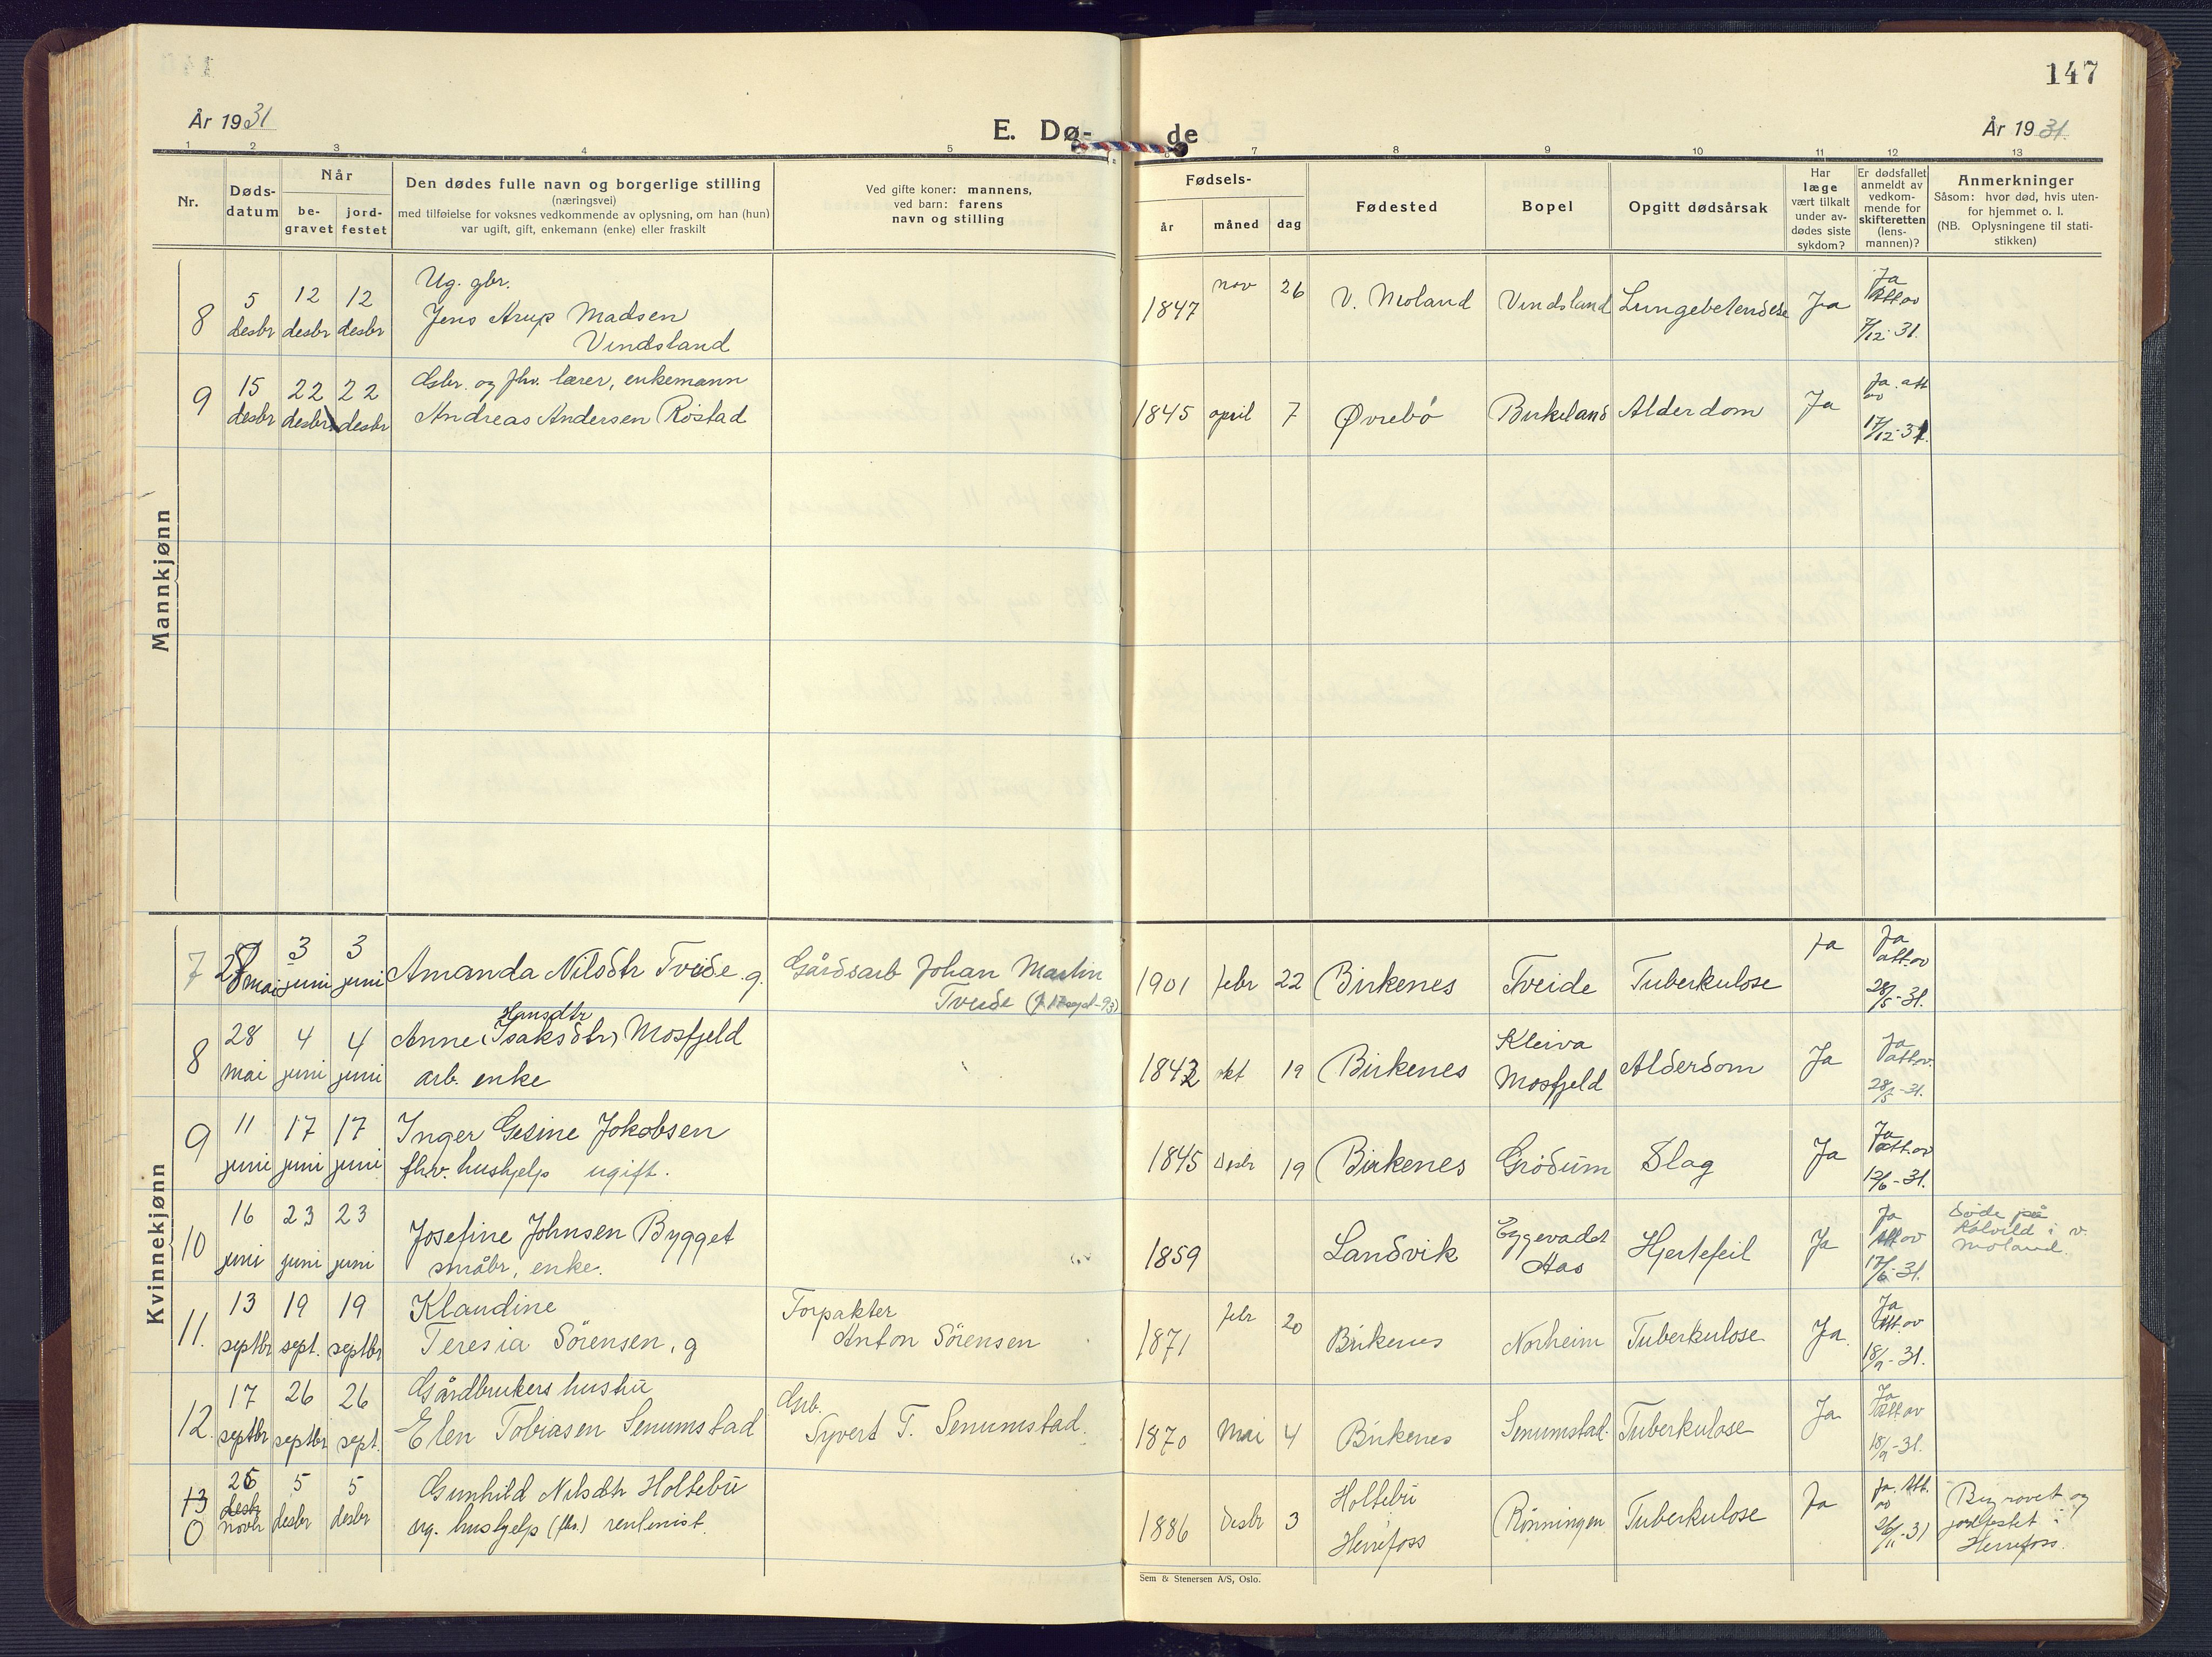 147
År 1931
E. Dø-
de
År 1931.
1 2 3 4 5 7 8 9 10 11 12 13
Nr.
Døds-
datum
Når
be-
gravet
jord-
festet
Den dødes fulle navn og borgerlige stilling
(næringsvei)
med tilføielse for voksnes vedkommende av oplysning, om han (hun)
var ugift, gift, enkemann (enke) eller fraskilt
Ved gifte koner: mannens,
ved barn: farens
navn og stilling
Fødsels-
år
måned
dag
Fødested
Bopel
Opgitt dødsårsak
Har
læge
vært tilkalt
under av-
dødes siste
sykdom?
Er dødsfallet
anmeldt av
vedkom-
mende for
skifteretten
(lens-
mannen)?
Anmerkninger
Såsom: hvor død, hvis uten-
for hjemmet o. l.
(NB. Oplysningene til stati-
stikken)
Mannkjønn
8
5
desbr
12
desbr
12
desbr
Ug. gbr.
Jens Arup Madsen
Vindsland
1847
nov
26
V. Moland
Vindsland
Lungebetendelse
Ja
Ja
Att ov
7/12-31.
9
15
desbr
22
desbr
22
desbr
Gbr. og fhv. lærer, enkemann
Andreas Andersen Röstad
1845
april
7
Øvrebö
Birkeland
Alderdom
Ja
Ja. att
ov
17/12-31.
Kvinnekjønn
7
28
mai
3
juni
3
juni
Amanda Nilsdtr Tveide. g.
Gårdsarb Johan Martin
Tveide
1901
febr
22
Birkenes
Tveide
Tuberkulose
Ja
Ja
att.ov
28/5-31.
8
28
mai
4
juni
4
juni
Hansdtr
Anne (Isaksdtr) Mosfjeld
arb. enke
1842
okt
19
Birkenes
Kleiva
Mosfjeld
Alderdom
Ja
Ja
att ov.
28/5-31.
9
11
juni
17
juni
17
juni
Inger Gesine Jakobsen
fhv. hushjelp ugift.
1845
Desbr
19
Birkenes
Grödum
Slag
Ja
Ja
att.ov
12/6-31.
10
16
juni
23
juni
23
juni
Josefine Johnsen Bygget
småbr, enke.
1859
Landvik
Eggevadet
Aas
Hjertefeil
Ja
Ja
Att ov
17/6-31.
Döde på
i v.
Moland.
11.
13
septbr
19
sept.
19
septbr
Klaudine
Teresia Sörensen, g
Forpakter
Anton Sörensen
1871
febr
20
Birkenes
Norheim
Tuberkulose
Ja.
Ja
Att.ov
18/9-31.
12.
17
septbr
26
septbr
26
sept.
Gårdbrukers hustru
Elen Tobiasen Senumstad
Grb.
Syvert T. Senumstad.
1870
Mai
4
Birkenes
Senumstad.
Tuberkulose
Ja
Ja
att ov
18/9-31.
13
0
26
desbr
novbr
5
desbr
5
desbr
Gunhild Nilsdtr Holtebu
ug. hushjelp (fhv.) rentenist.
1886
Desbr
3
Holtebu
Herefoss
Rönningen
Tuberkulose
Ja
Ja. Att.
ov
26/11-31
Begravet og
jordfestet i
Herefoss.
Sem & Stenersen A/S, Oslo.